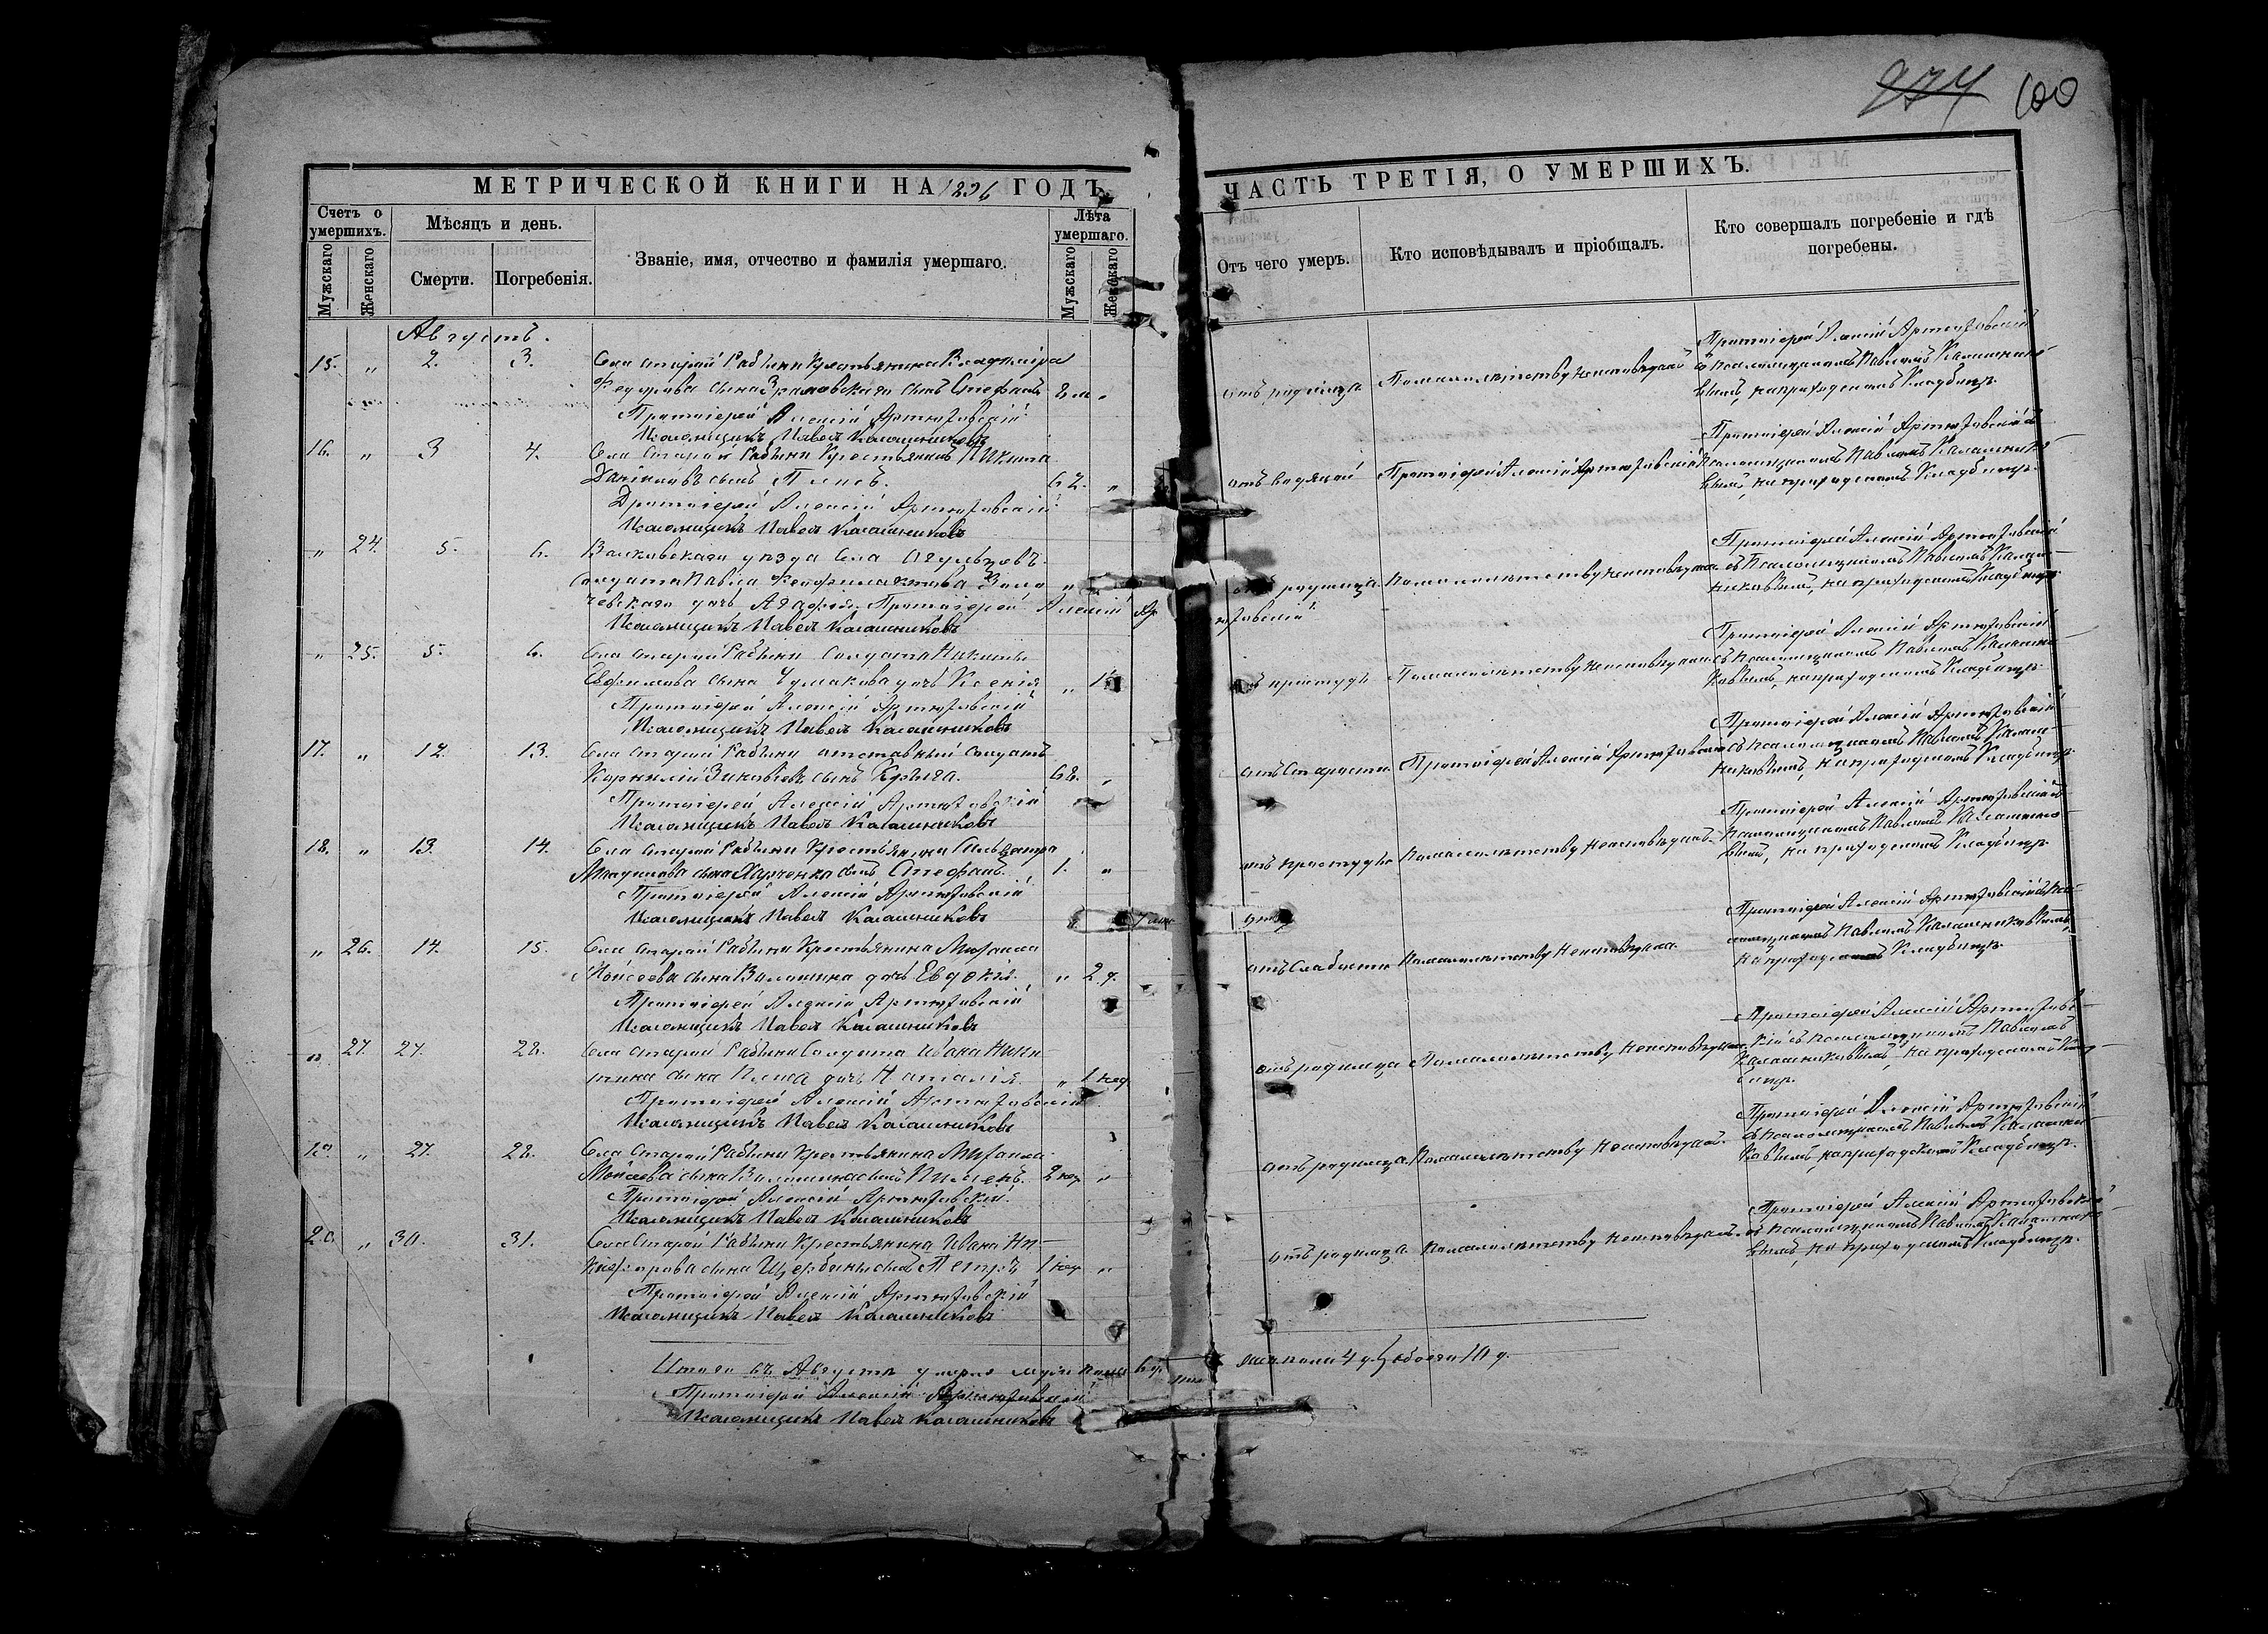 974 100
МЕТРИЧЕСКОЙ КНИГИ НА 1896 ГОДЪ
ЧАСТЬ ТРЕТІЯ, О УМЕРШИХЪ.
Счетъ о умершихъ.
Мужскаго
Женскаго
Мѣсяцъ и день.
Смерти.
Погребенія.
Званіе, имя, отчество и фамилія умершаго.
Лѣта умершаго.
Мужскаго
Женскаго
Отъ чего умеръ.
Кто исповѣдывалъ и пріобщалъ.
Кто совершалъ погребеніе и гдѣ
погребены.
Августъ.
15. „ 2. 3. Села Старой Рябины Крестьянина Владиміра
Федорова сына сынъ Стефанъ 8 м „
Протоіерей Алексій Артюховскій
Псаломщикъ Павелъ Калашниковъ
отъ родимца По малолѣтству неисповѣданъ
Протоіерей Алексій Артюховскій
съ псаломщикомъ Павломъ Калашнико-
вымъ, на приходскомъ кладбищѣ.
16. „ 3 4. Села Старой Рябины Крестьянинъ Никита
Даніиловъ сынъ 62. „
Протоіерей Алексій Артюховскій
Псаломщикъ Павелъ Калашниковъ
отъ водяной Протоіерей Алексій Артюховскій
Протоіерей Алексій Артюховскій съ
псаломщикомъ Павломъ Калашнико-
вымъ, на приходскомъ кладбищѣ.
„ 24. 5. 6. Волковскаго уѣзда села
Солдата Павла Феофилактова
дочь Агафія. Протоіерей Алексій Артюховскій
Псаломщикъ Павелъ Калашниковъ
отъ родимца По малолѣтству неисповѣдана
Протоіерей Алексій Артюховскій
съ псаломщикомъ Павломъ Калаш-
никовымъ, на приходскомъ кладбищѣ.
„ 25. 5. 6. Села Старой Рябины Солдата Никиты
Евфимова сына Чумакова дочь Ксенія „
Протоіерей Алексій Артюховскій
Псаломщикъ Павелъ Калашниковъ
отъ простуды По малолѣтству неисповѣдана
Протоіерей Алексій Артюховскій
съ псаломщикомъ Павломъ Калашни-
ковымъ, на приходскомъ кладбищѣ.
17. „ 12. 13. Села Старой Рябины отставный солдатъ
Корнилій Зиновіевъ сынъ 68. „
Протоіерей Алексій Артюховскій
Псаломщикъ Павелъ Калашниковъ
отъ старости Протоіерей Алексій Артюховскій
Протоіерей Алексій Артюховскій
съ псаломщикомъ Павломъ Калаш-
никовымъ, на приходскомъ кладбищѣ.
18. „ 13. 14. Села Старой Рябины Крестьянина
сына Харченка сынъ Стефанъ. 1. „
Протоіерей Алексій Артюховскій
Псаломщикъ Павелъ Калашниковъ
отъ простуды По малолѣтству неисповѣданъ
Протоіерей Алексій Артюховскій съ
псаломщикомъ Павломъ Калашнико-
вымъ, на приходскомъ кладбищѣ.
„ 26. 14. 15. Села Старой Рябины Крестьянина Михаила
Моисеева сына дочь Евдокія. „ 2 д.
Протоіерей Алексій Артюховскій
Псаломщикъ Павелъ Калашниковъ
отъ слабости По малолѣтству неисповѣдана
Протоіерей Алексій Артюховскій съ пса-
ломщикомъ Павломъ Калашниковымъ,
на приходскомъ кладбищѣ.
„ 27. 27. 28. Села Старой Рябины Солдата Ивана Ники-
тина сына дочь Наталія. „ 1 нед
Протоіерей Алексій Артюховскій
Псаломщикъ Павелъ Калашниковъ
отъ родимца По малолѣтству неисповѣдана
Протоіерей Алексій Артюховс-
кій съ псаломщикомъ Павломъ
Калашниковымъ, на приходскомъ клад-
бищѣ.
19. „ 27. 28. Села Старой Рябины Крестьянина Михаила
Моисеева сына сынъ Пименъ. 2 нед „
Протоіерей Алексій Артюховскій.
Псаломщикъ Павелъ Калашниковъ
отъ родимца По малолѣтству неисповѣданъ.
Протоіерей Алексій Артюховскій
съ псаломщикомъ Павломъ Калашни-
ковымъ, на приходскомъ кладбищѣ.
20. „ 30. 31. Села Старой Рябины Крестьянина Ивана Ни-
кифорова сына Щербины сынъ Петръ 1 нед „
Протоіерей Алексій Артюховскій
Псаломщикъ Павелъ Калашниковъ
отъ родимца По малолѣтству неисповѣданъ.
Протоіерей Алексій Артюховскій
съ псаломщикомъ Павломъ Калашнико-
вымъ, на приходскомъ кладбищѣ.
Итого въ Августѣ умерло муж. пола 6 д. женска пола 4 д. обоего 10 д.
Протоіерей Алексій Артюховскій
Псаломщикъ Павелъ Калашниковъ